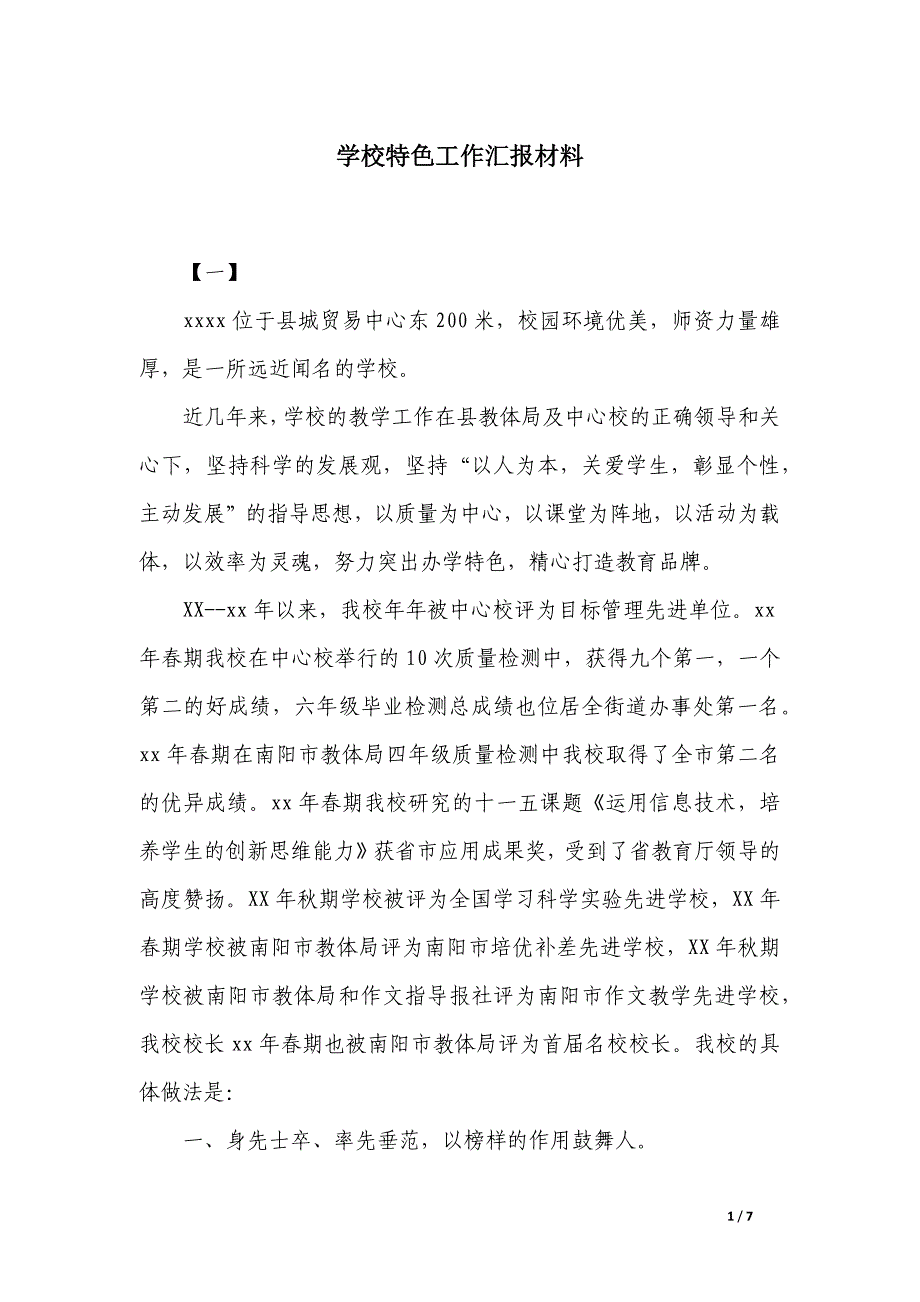 学校特色工作汇报材料
【一】
xxxx 位于县城贸易中心东 200 米，校园环境优美，师资力量雄
厚，是一所远近闻名的学校。
近几年来，学校的教学工作在县教体局及中心校的正确领导和关
心下，坚持科学的发展观，坚持“以人为本，关爱学生，彰显个性，
主动发展”的指导思想，以质量为中心，以课堂为阵地，以活动为载
体，以效率为灵魂，努力突出办学特色，精心打造教育品牌。
XX--xx 年以来，我校年年被中心校评为目标管理先进单位。xx
年春期我校在中心校举行的 10 次质量检测中，获得九个第一，一个
第二的好成绩，六年级毕业检测总成绩也位居全街道办事处第一名。
xx 年春期在南阳市教体局四年级质量检测中我校取得了全市第二名
的优异成绩。xx 年春期我校研究的十一五课题《运用信息技术，培
养学生的创新思维能力》获省市应用成果奖，受到了省教育厅领导的
高度赞扬。XX 年秋期学校被评为全国学习科学实验先进学校，XX 年
春期学校被南阳市教体局评为南阳市培优补差先进学校，XX 年秋期
学校被南阳市教体局和作文指导报社评为南阳市作文教学先进学校，
我校校长 xx 年春期也被南阳市教体局评为首届名校校长。我校的具
体做法是：
一、身先士卒、率先垂范，以榜样的作用鼓舞人。
1 / 7